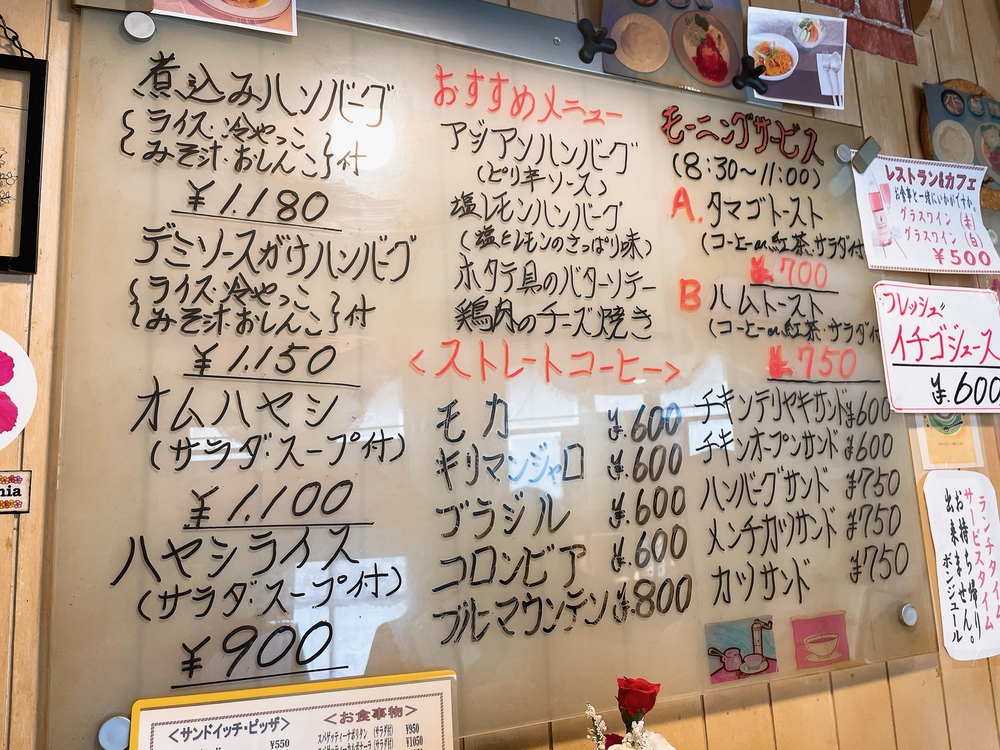 煮込みハンバーグ
{ライス・冷やっこ
みそ汁・おしんこ}付
¥1.180
デミソースガケハンバーグ
{ライス・冷やっこ
みそ汁・おしんこ}付
¥1.150
オムハヤシ
(サラダ・スープ付)
¥1.100
ハヤシライス
(サラダ・スープ付)
¥900
おすすめメニュー
アジアンハンバーグ
(ピリ辛ソース)
塩レモンハンバーグ
(塩とレモンのさっぱり味)
ホタテ貝のバターソテー
鶏肉のチーズ焼き
<ストレートコーヒー>
モカ ¥.600
キリマンジャロ ¥.600
ブラジル ¥.600
コロンビア ¥.600
ブルマウンテン ¥.800
モーニングサービス
(8:30〜11:00)
A. タマゴトースト
(コーヒーor紅茶・サラダ付
¥.700
B ハムトースト
(コーヒーor紅茶・サラダ付
¥.750
チキンテリヤキサンド ¥600
チキンオープンサンド ¥600
ハンバーグサンド ¥750
メンチカツサンド ¥750
カツサンド ¥750
レストラン&カフェ
お食事と一緒にいかがですか。
グラスワイン (赤)
グラスワイン (白)
¥500
フレッシュ
イチゴジュース
¥.600
ランチタイム
サービスタイム
お持ち帰り
出来ません。
ボンジュール
nia
<サンドイッチ・ピッザ>
¥550
<お食事物>
スパゲッティーナポリタン (サラダ付) ¥950
¥1050